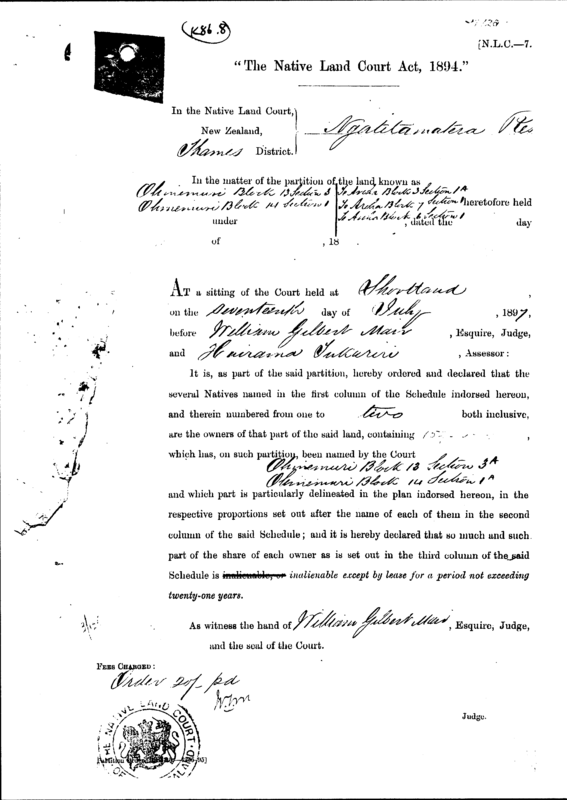 K86.8
[N.L.C.—7.
"The Native Land Court Act, 1894."
In the Native Land Court,
New Zealand,
Thames District.
Ngatitamatera
In the matter of the partition of the land known as
Ohinemuri Block 13 Section 3
To Aroha Block 3 Section 1A
Ohinemuri Block 14 Section 1
To Aroha Block 7 Section 1 heretofore held
To Aroha Block 6 Section 1
under , dated the day
of , 18
At a sitting of the Court held at Shortland ,
on the Seventeenth day of July , 1897,
before William Gilbert Mair , Esquire, Judge,
and , Assessor:
It is, as part of the said partition, hereby ordered and declared that the
several Natives named in the first column of the Schedule indorsed hereon,
and therein numbered from one to two both inclusive,
are the owners of that part of the said land, containing ,
which has, on such partition, been named by the Court
Ohinemuri Block 13 Section 3A
Ohinemuri Block 14 Section 1A
and which part is particularly delineated in the plan indorsed hereon, in the
respective proportions set out after the name of each of them in the second
column of the said Schedule; and it is hereby declared that so much and such
part of the share of each owner as is set out in the third column of the said
Schedule is inalienable, or inalienable except by lease for a period not exceeding
twenty-one years.
As witness the hand of William Gilbert Mair, Esquire, Judge,
and the seal of the Court.
Fees Charged:
Order 20/- pd
Judge.
THE NATIVE LAND COURT OF ZEALAND